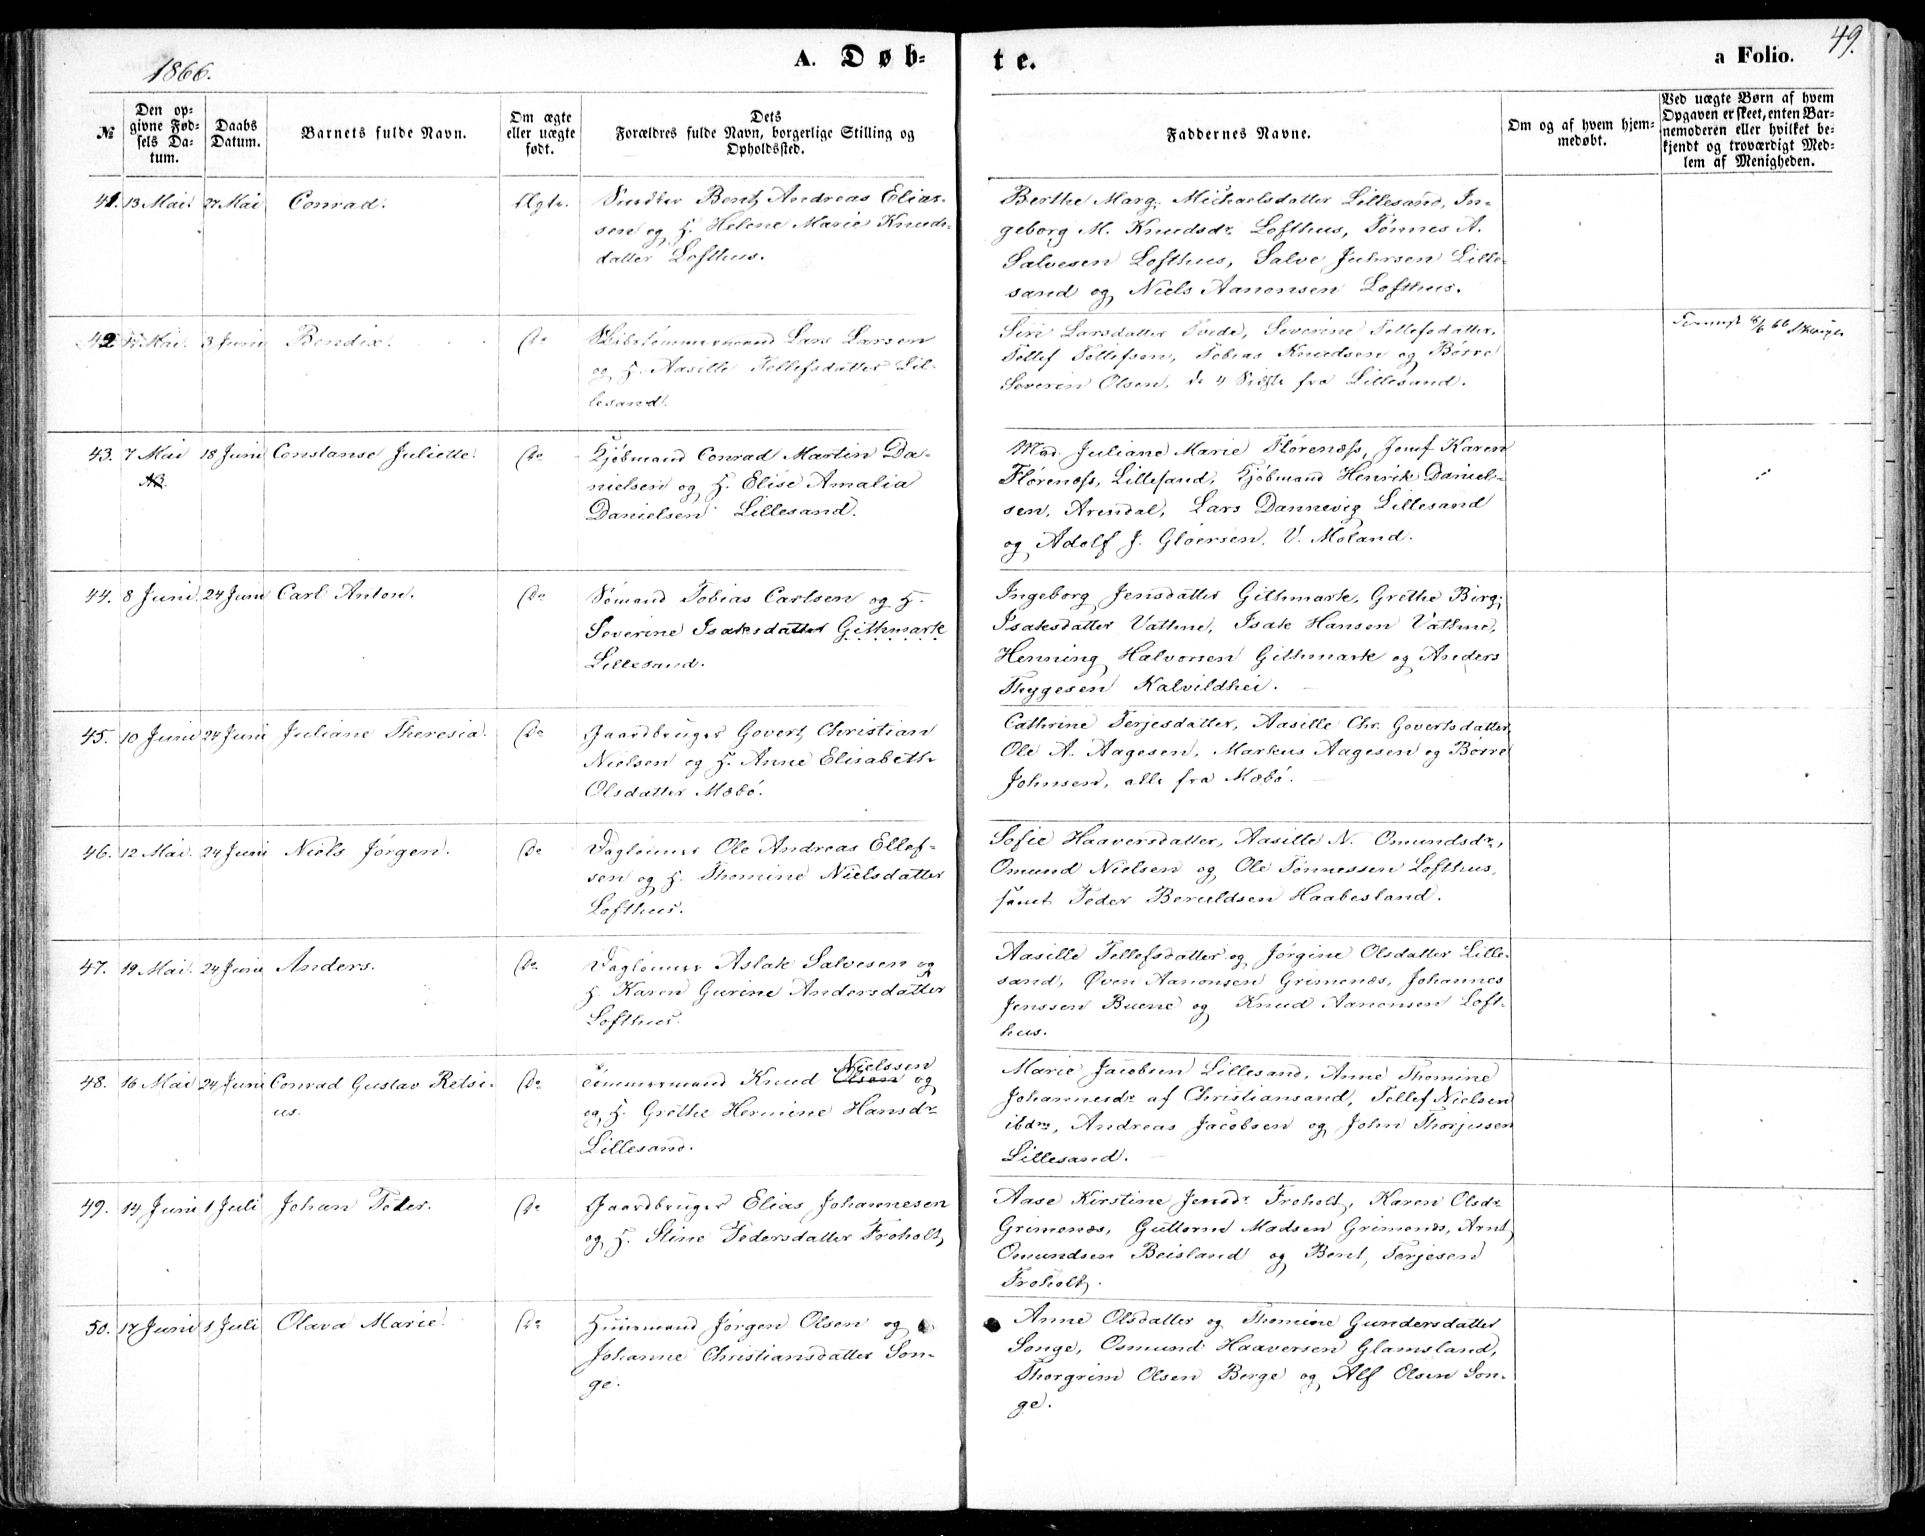 1866.
A. Døb-
te.
a Folio.
49.
№
Den op-
givne Fød-
sels Da-
tum.
Daabs
Datum.
Barnets fulde Navn.
Om ægte
eller uægte
født.
Dets
Forældres fulde Navn, borgerlige Stilling og
Opholdssted.
Faddernes Navne.
Om og af hvem hjem-
medøbt.
Ved uægte Børn af hvem
Opgaven er skeet, enten Bar-
nemoderen eller hvilket be-
kjendt og troværdigt Med-
lem af Menigheden.
41. 13 Mai. 27 Mai Conrad. Ægte.
Snedker Bent Andreas Elias-
sen og H. Helene Marie Knuds-
datter Lofthus.
Berthe Marg. Michaelsdatter Lillesand, In-
geborg M. Knudsdr. Lofthus, Tønnes A.
Salvesen Lofthus, Salve Juhrsen Lille-
sand og Niels Aanonsen Lofthus.
42 Mai. 3 Juni Bendix. do
Skibstømmermand Lars Larsen
og H. Aasille Tellefsdatter Lil-
lesand.
Siri Larsdatter Tvede, Severine Tellefsdatter,
Tellef Tellefsen, Tobias Knudsen og Børre
Severin Olsen, de 4 Sidste fra Lillesand.
43. 7 Mai 18 Juni Constanse Juliette. do
NB.
Kjøbmand Conrad Martin Da-
nielsen og H. Elise Amalia
Danielsen Lillesand.
Mad. Juliane Marie Flørenæss, Jomf Karen
Flørenæss, Lillesand, Kjøbmand Henrik Daniel-
sen, Arendal, Lars Dannevig Lillesand
og Adolf J. Gløersen, V. Moland.
44. 8 Juni. 24 Juni Carl Anton. do
Sømand Tobias Carlsen og H.
Severine Isaksdatter Githmark
Lillesand.
Ingeborg Jensdatter Githmark, Grethe Birg.
Isaksdatter Vathne, Isak Hansen Vathne,
Henning Halvorsen Githmark og Anders
Thygesen Kalvildhei.
45. 10 Juni 24 Juni Juliane Theresia. do
Gaardbruger Govert Christian
Nielsen og H. Anne Elisabeth
Olsdatter Møbø.
Cathrine Terjesdatter, Aasille Chr. Govertsdatter,
Ole A. Aagesen, Markus Aagesen og Børre
Johnsen, alle fra Møbø.
46. 12 Mai. 24 Juni Niels Jørgen. do
Dagleiner Ole Andreas Ellef-
sen og H. Thomine Nielsdatter
Lofthus.
Sofie Haaversdatter, Aasille N. Omundsdr.,
Omund Nielsen og Ole Tønnessen Lofthus,
samt Peder Beruldsen Haabesland.
47. 19 Mai. 24 Juni Anders. do
Dagleiner Aslak Salvesen og
H. Karen Gurine Andersdatter
Lofthus.
Aasille Tellefsdatter og Jørgine Olsdatter Lille-
sand, Øven Aanonsen Grimenæs, Johannes
Jenssen Buene og Knud Aanonsen Loft-
hus.
48. 16 Mai 24 Juni Conrad Gustav Retsi- do
us.
Nielssen
Tømmermand Knud Olsen og
og H. Grethe Hermine Hansdr
Lillesand.
Marie Jacobsen Lillesand, Anne Thomine
Johannesdr af Christiansand, Tellef Nielsen
ibdm, Andreas Jacobsen og John Thorjusen
Lillesand.
49. 14 Juni 1 Juli Johan Peder. do
Gaardbruger Elias Johannesen
og H. Stine Pedersdatter Froholt
Aase Kirstine Jensdr Froholt, Karen Olsdr
Grimenæs, Guttorm Madsen Grimenæs, Arnt
Omundsen Beisland og Bent Terjesen
Froholt.
50. 17 Juni 1 Juli Olava Marie. do
Huusmand Jørgen Olsen og
Johanne Christiansdatter Son-
ge.
Anne Olsdatter og Thomine Gundersdatter
Songe, Osmund Haaversen Glamsland,
Thorgrim Olsen Berge og Alf Olsen Son-
ge.